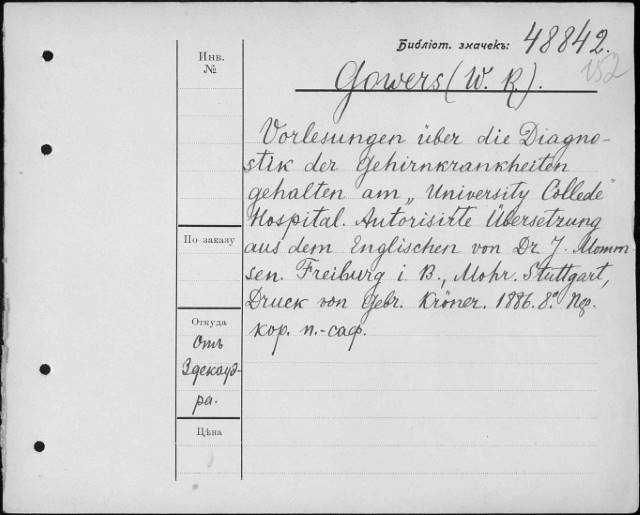 Библіот. значекъ: 48842.
152
Gowers (W. R.).
Инв.
№
Vorlesungen über die Diagno-
stik der Gehirnkrankheiten
gehalten am „University Collede"
Hospital. Autorisirte Übersetzung
aus dem Englischen von Dr J. Momm-
sen. Freiburg i B., Mohr. Stuttgart,
Druck von Gebr. Kröner. 1886. 8º Пер.
кор. п.-саф.
По заказу
Откуда
Отъ
Здекауэ-
ра.
Цѣна